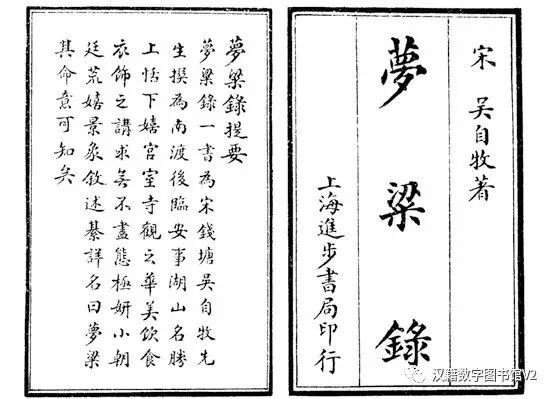 宋 吳自牧著
夢粱錄
上海進步書局印行
夢粱錄提要
夢粱錄一書為宋錢塘吳自牧先
生撰為南渡後臨安事湖山名勝
上恬下嬉宮室寺觀之華美飲食
衣飾之講求無不盡態極妍小朝
廷荒嬉景象敘述綦詳名曰夢粱
其命意可知矣
汉籍数字图书馆V2